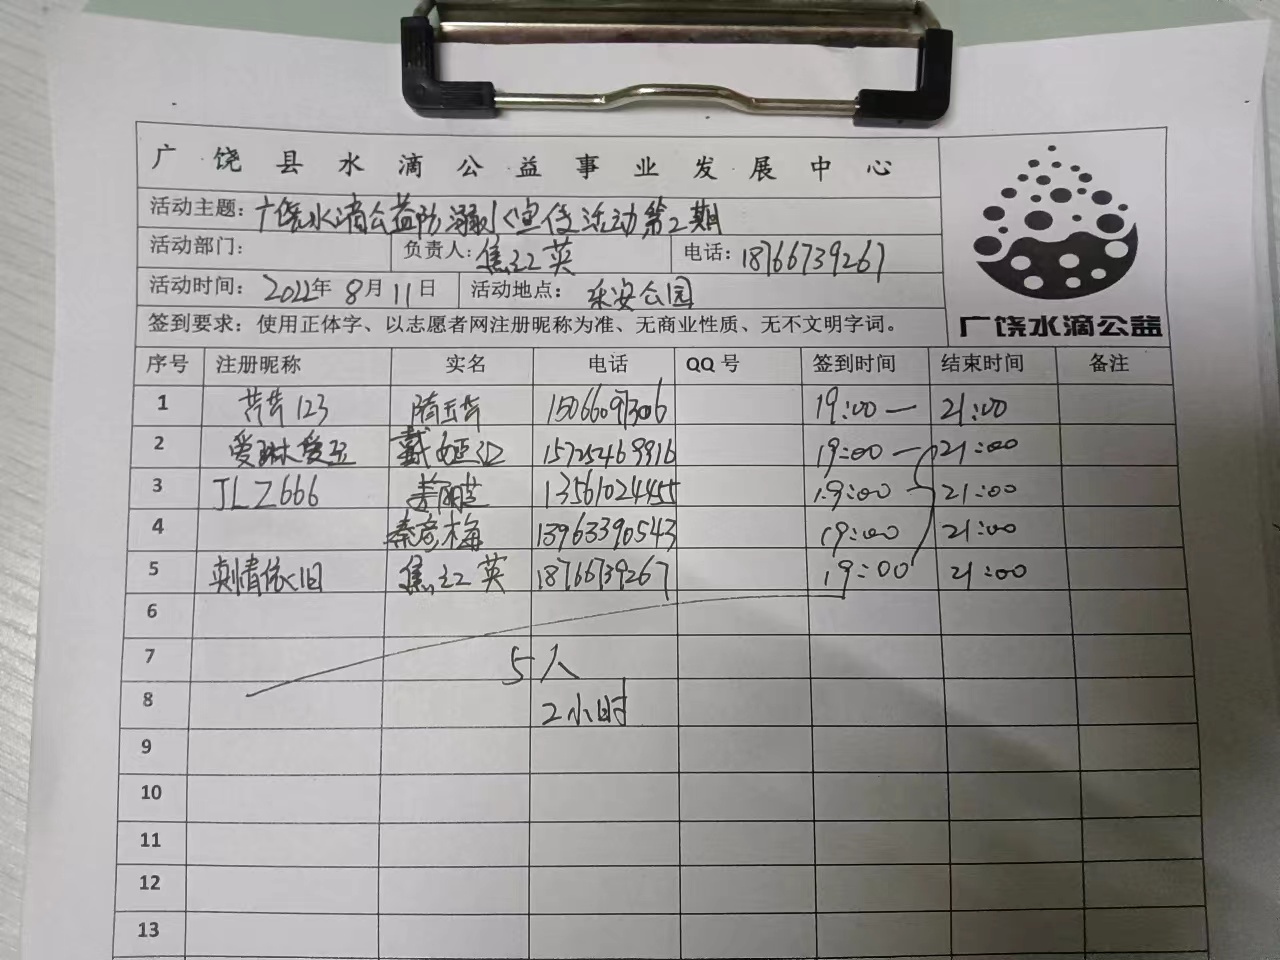 广饶县水滴公益事业发展中心
活动主题：广饶水滴公益防溺水宣传活动第2期
活动部门： 负责人：焦红英 电话：18766739267
活动时间：2022年8月11日 活动地点：乐安公园
签到要求：使用正体字、以志愿者网注册昵称为准、无商业性质、无不文明字词。
广饶水滴公益
序号 注册昵称 实名 电话 QQ号 签到时间 结束时间 备注
1 芹芹123 隋玉芹 15066097306 19:00— 21:00
2 爱琳爱玉 戴娅红 15725469916 19:00— 21:00
3 JLZ666 13561024455 19:00— 21:00
4 秦彦梅 13963390543 19:00 21:00
5 剩情依旧 焦红英 18766739267 19:00 21:00
6
7 5人
8 2小时
9
10
11
12
13